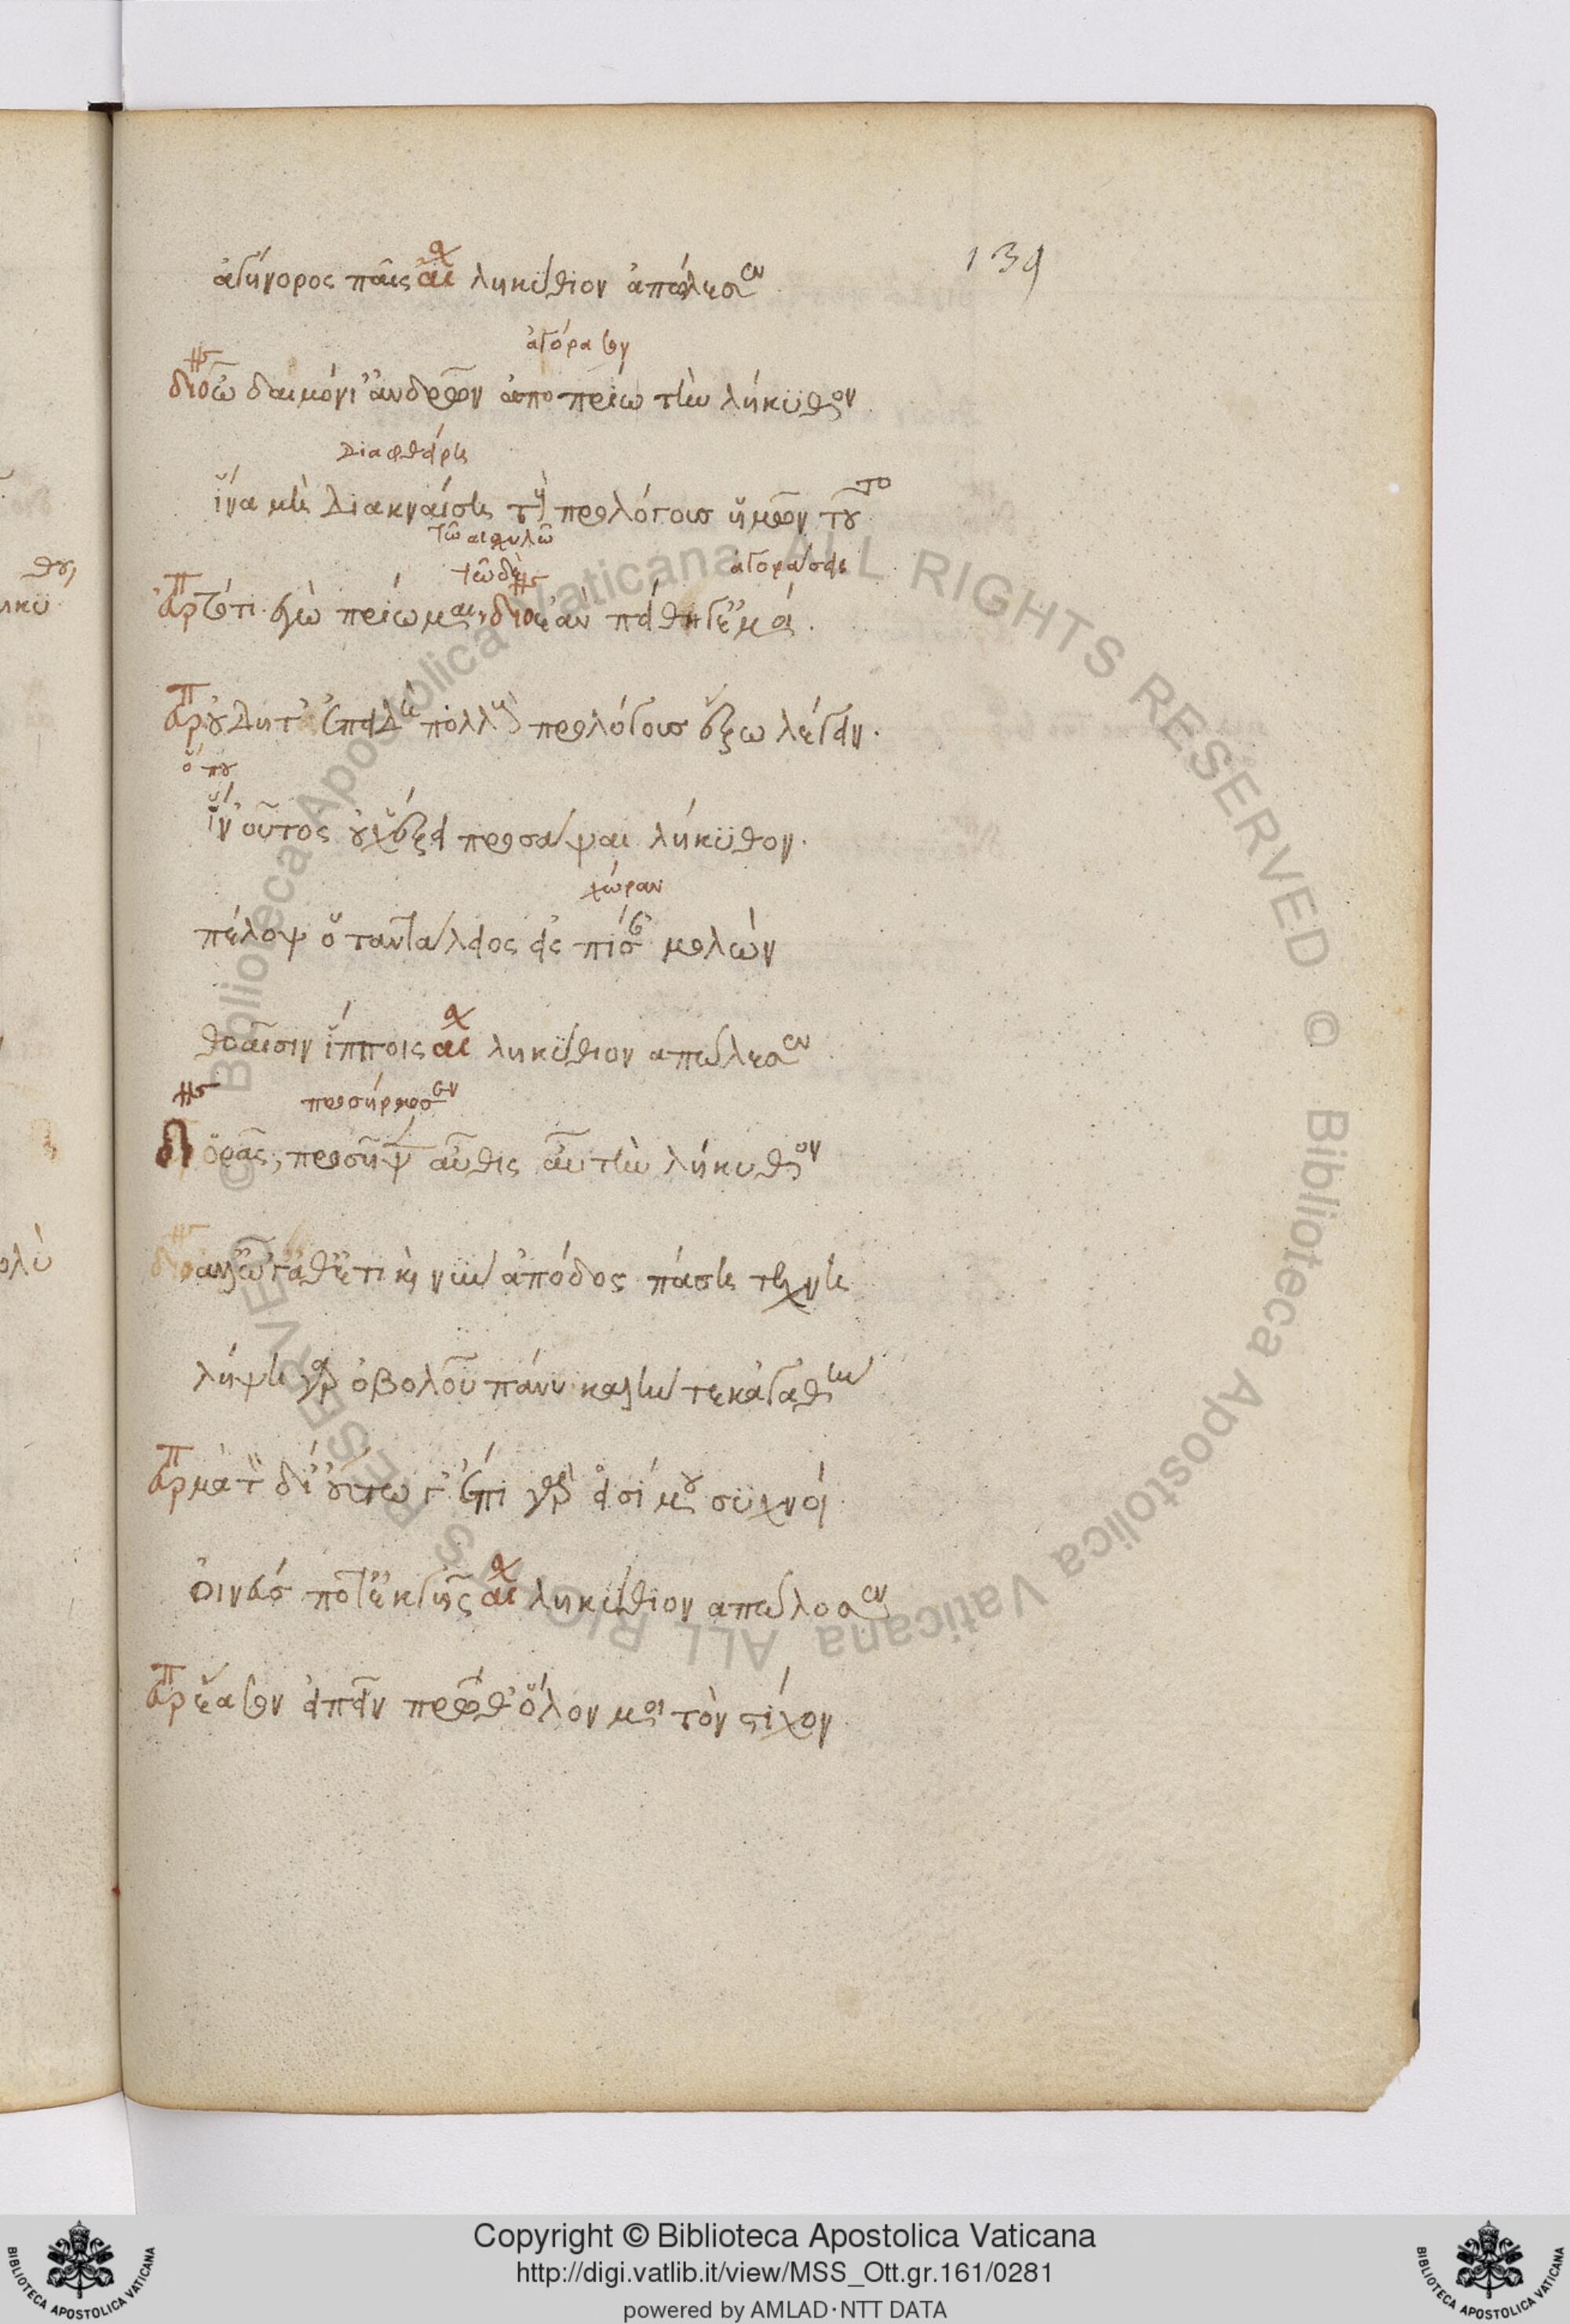 139
ἀγήνορος παῖς αἰσχ ληκύθιον ἀπώλεσεν
ἀγόρασον
διον ὦ δαιμόνι' ἀνδρῶν ἀποπρίω τὴν λήκυθον
διαφθείρη
ἵνα μὴ διακναίση τοὺς προλόγους ἡμῶν τουτο
τῶ αἰσχυλω
τῶδε ἀγοράσαι
Ἐυρ τὸ τί ἐγὼ πρίωμαι, διον ἐὰν πείθη γ' ἐμοί.
Ἐυρ οὐ δῆτ' ἐπεὶ δὴ πολλοὺς προλόγους ἕξω λέγειν.
ὅπου
ἵν' οὗτος οὐχ ἕξει προσάψαι λήκυθον.
χώραν
πέλοψ ὁ ταντάλειος εἰς πίσαν μολών
θοαῖσιν ἵπποις αἰσχ ληκύθιον ἀπώλεσεν
προσήρμοσεν
δι ὁρᾶς, προσῆψεν αὖθις αὖ τὴν λήκυθον
διον ἀλλ' ὦ 'γάθ' ἔτι καὶ νῦν ἀπόδος πάση τέχνη
λήψη γὰρ ὀβολοῦ πάνυ καλὴν τε κἀγαθήν
Ἐυρ μὰ τὸν δί' οὔπω γ' ἔτι γὰρ εἰσί μου συχνοί
οἰνεύς ποτ' ἐκ γῆς αἰσχ ληκύθιον ἀπώλεσεν
Ἐυρ ἔασον εἰπεῖν πρῶθ' ὅλον με τὸν στίχον
Copyright © Biblioteca Apostolica Vaticana
http://digi.vatlib.it/view/MSS_Ott.gr.161/0281
powered by AMLAD·NTT DATA